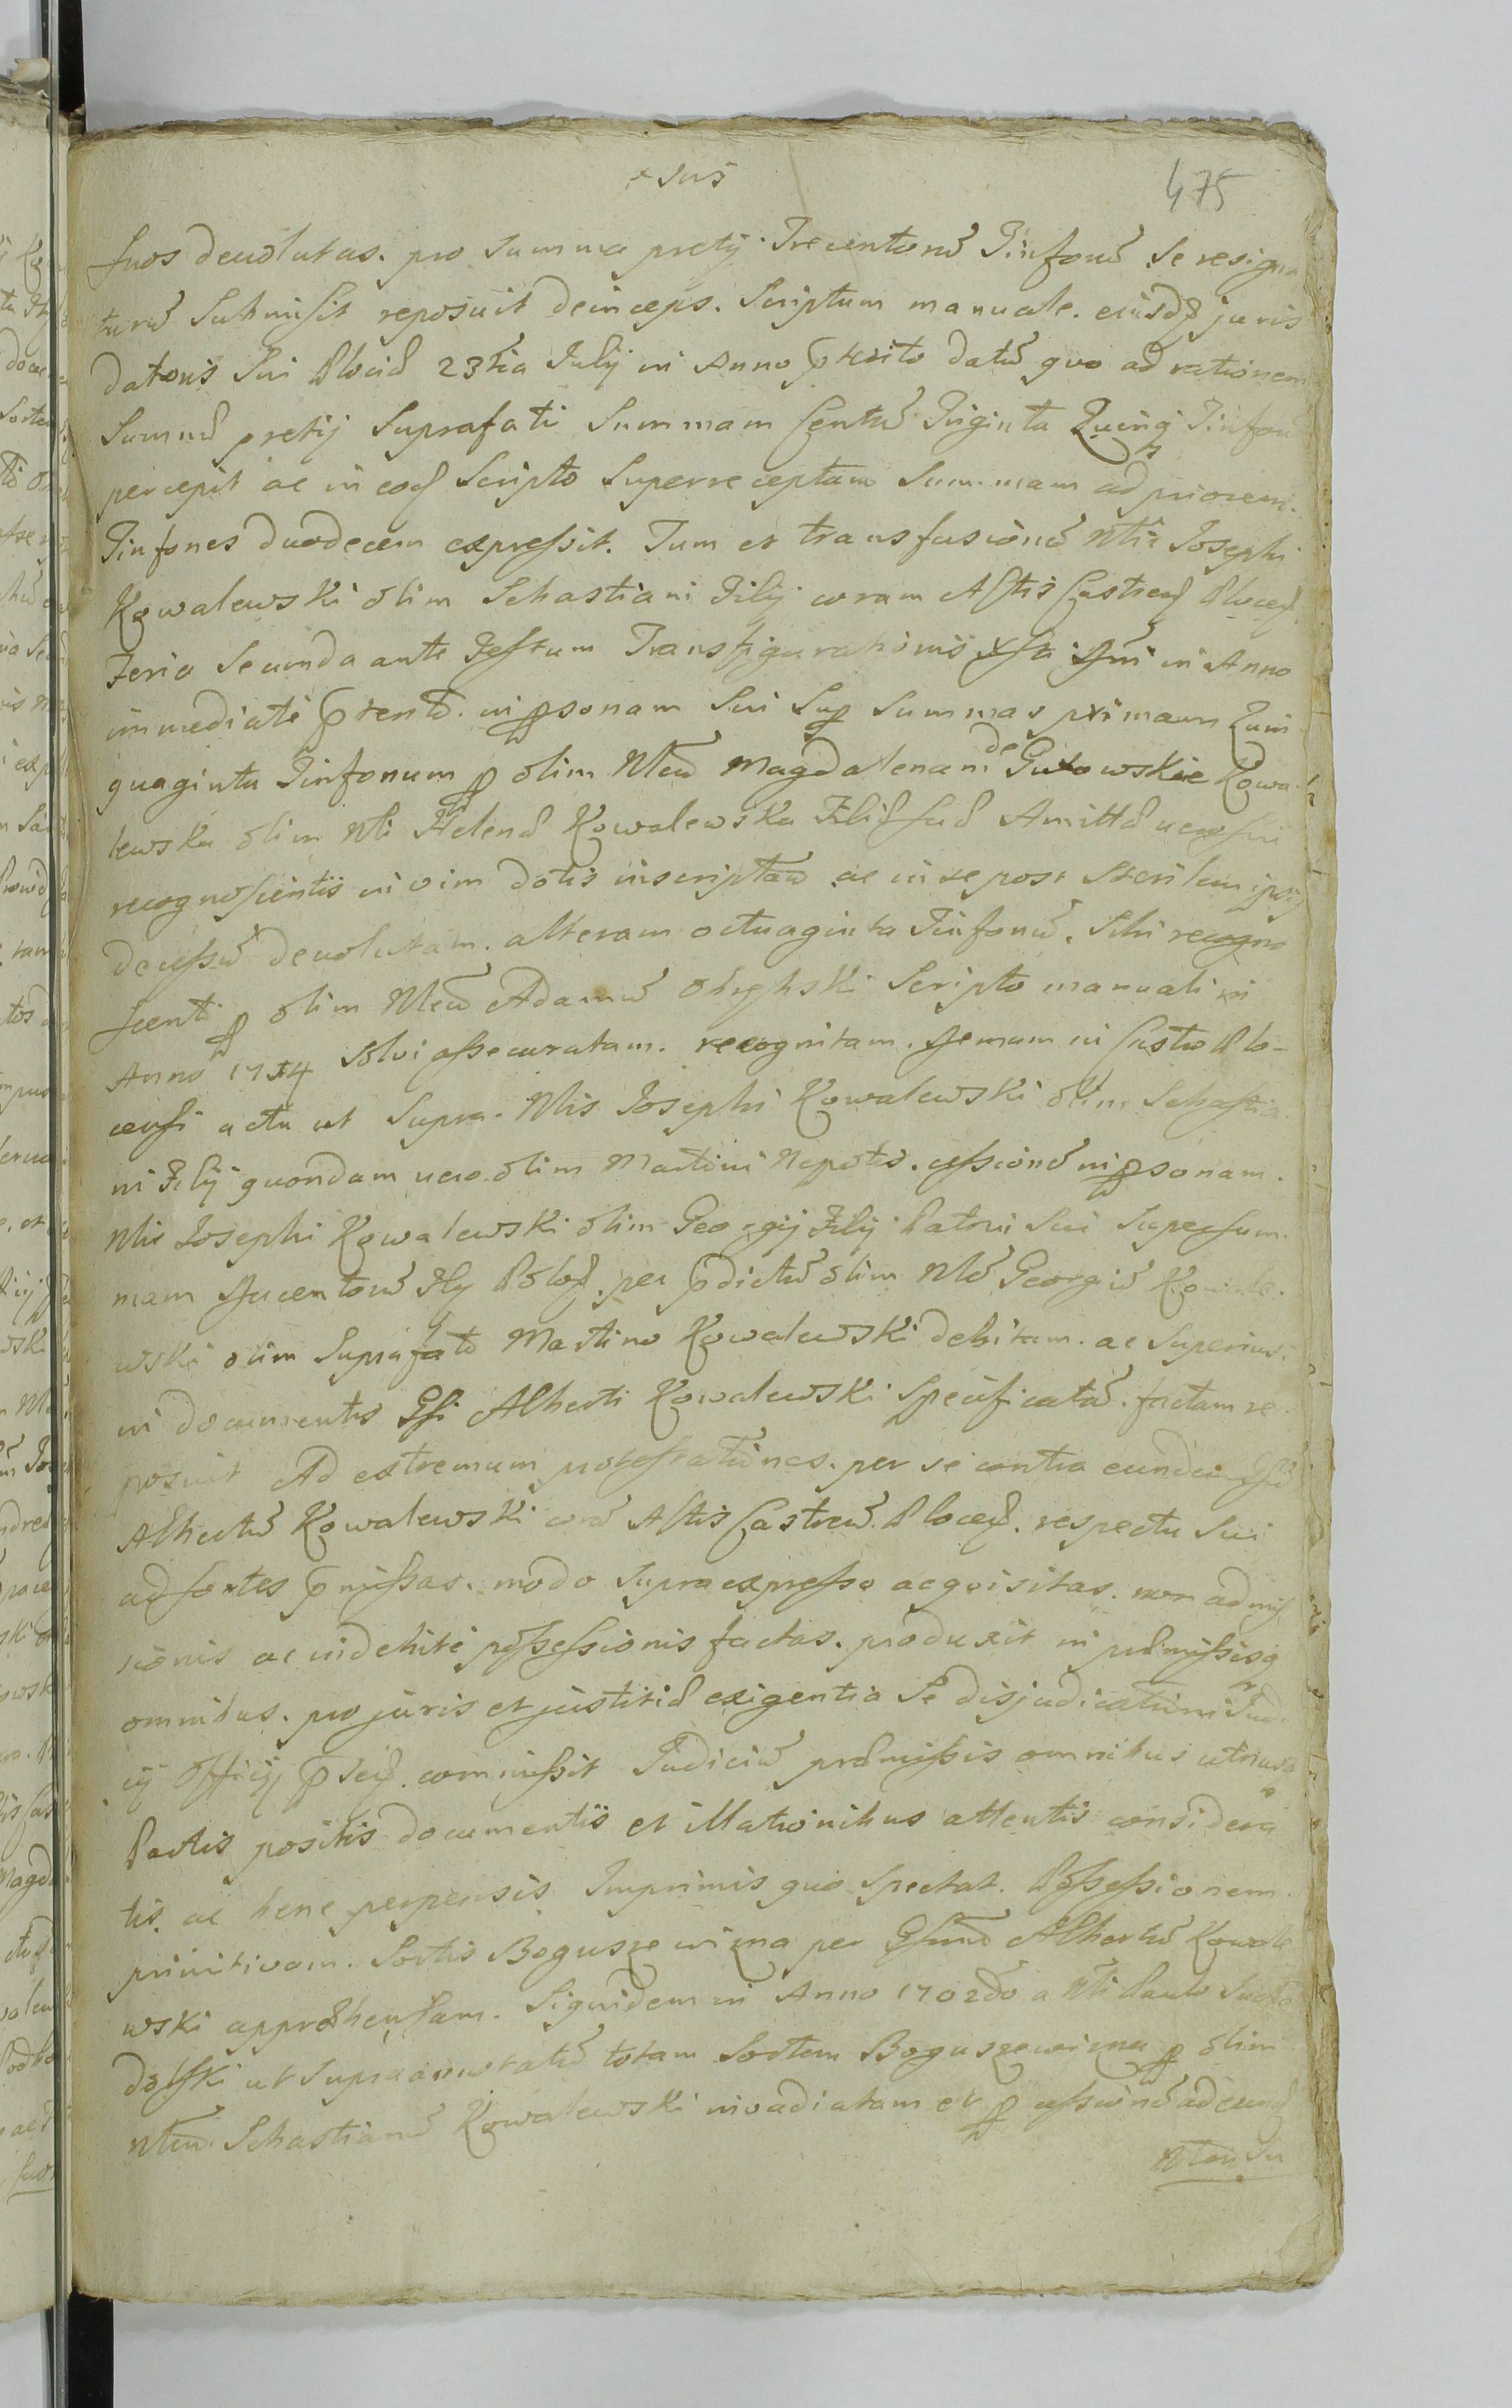 475
suos devolutas. pro summa pretij Trecentorū Tinforū se resigna
turū submisit reposuit deinceps. Scriptum manuale. eiusdē juris
datoris sui Plociæ 23tia Julij in Anno præterito datū quo ad rationem
Summæ pretij Suprafati Summam Centū Triginta Quinq Tinforū
percepit ac in eod Scripto Superreceptam Summam ad priorem.
Tinfones duodecem expressit. Tum et transfusionē Nlis Josephi
Kowalewski olim Sebastiani Filij coram Actis Castren Plocen
Feria Secunda ante Festum Transfigurationis Xti Dni in Anno
immediate præterito. in personam Sui Sup Summas primam Quin
quaginta Tinfonum p olim Nlem Magdalenam de Gutowskie Kowa
lewska olim Nli Helenæ Kowalewska Filiæ suæ Amittæ vero sui
recognoscentis in vim dotis inscriptam ac in se post sterilem ipsius
decessū devolutam. alteram octuaginta Tinfonū. Sibi recogno
scenti p olim Nlem Adamū Obrębski Scripto manuali in
Anno 1714 solvi assecuratam. recognitam. demum in Castro Plo-
censi actu ut supra. Nlis Josephi Kowalewski olim Sebastia
ni Filij quondam vero olim Martini Nepotis. cessionē in personam.
Nlis Josephi Kowalewski olim Georgij Filij Patrui Sui Super sum
mam Ducentorū Flor Polo. per prædictū olim Nlē Georgiū Kowale.
wski olim Suprafato Martino Kowalewski debitam. ac Superius.
in documentis Gsi Alberti Kowalewski Specificatā. factam re
posuit Ad extremum protestationes. per se contra eundem Gsū
Albertū Kowalewski corā Actis Castren. Plocen. respectu Sui
ad sortes præmissas. modo supraexpresso acquisitas. non admis
sionis ac indebite possessionis factas. produxit in præmissisq
omnibus. pro juris et justitiæ exigentia Se disjudicationi Jud
cij Officij præsen. commissit Judiciū præmissis omnibus utriusq
Partis positis documentis et illationibus attentis considera
tis. ac bene perpensis Imprimis quo spectat. Possessionem.
primitivam. Sortis Boguszewizna per Gsum Albertū Kowale
wski apprehensam. Siquidem in Anno 1702do a Nli Paulo Sucho
dolski ut supraannotatū totam Sortem Boguszewizna p olim
Nlem Sebastianū Kowalewski invadiatam et p cessionē ad eund